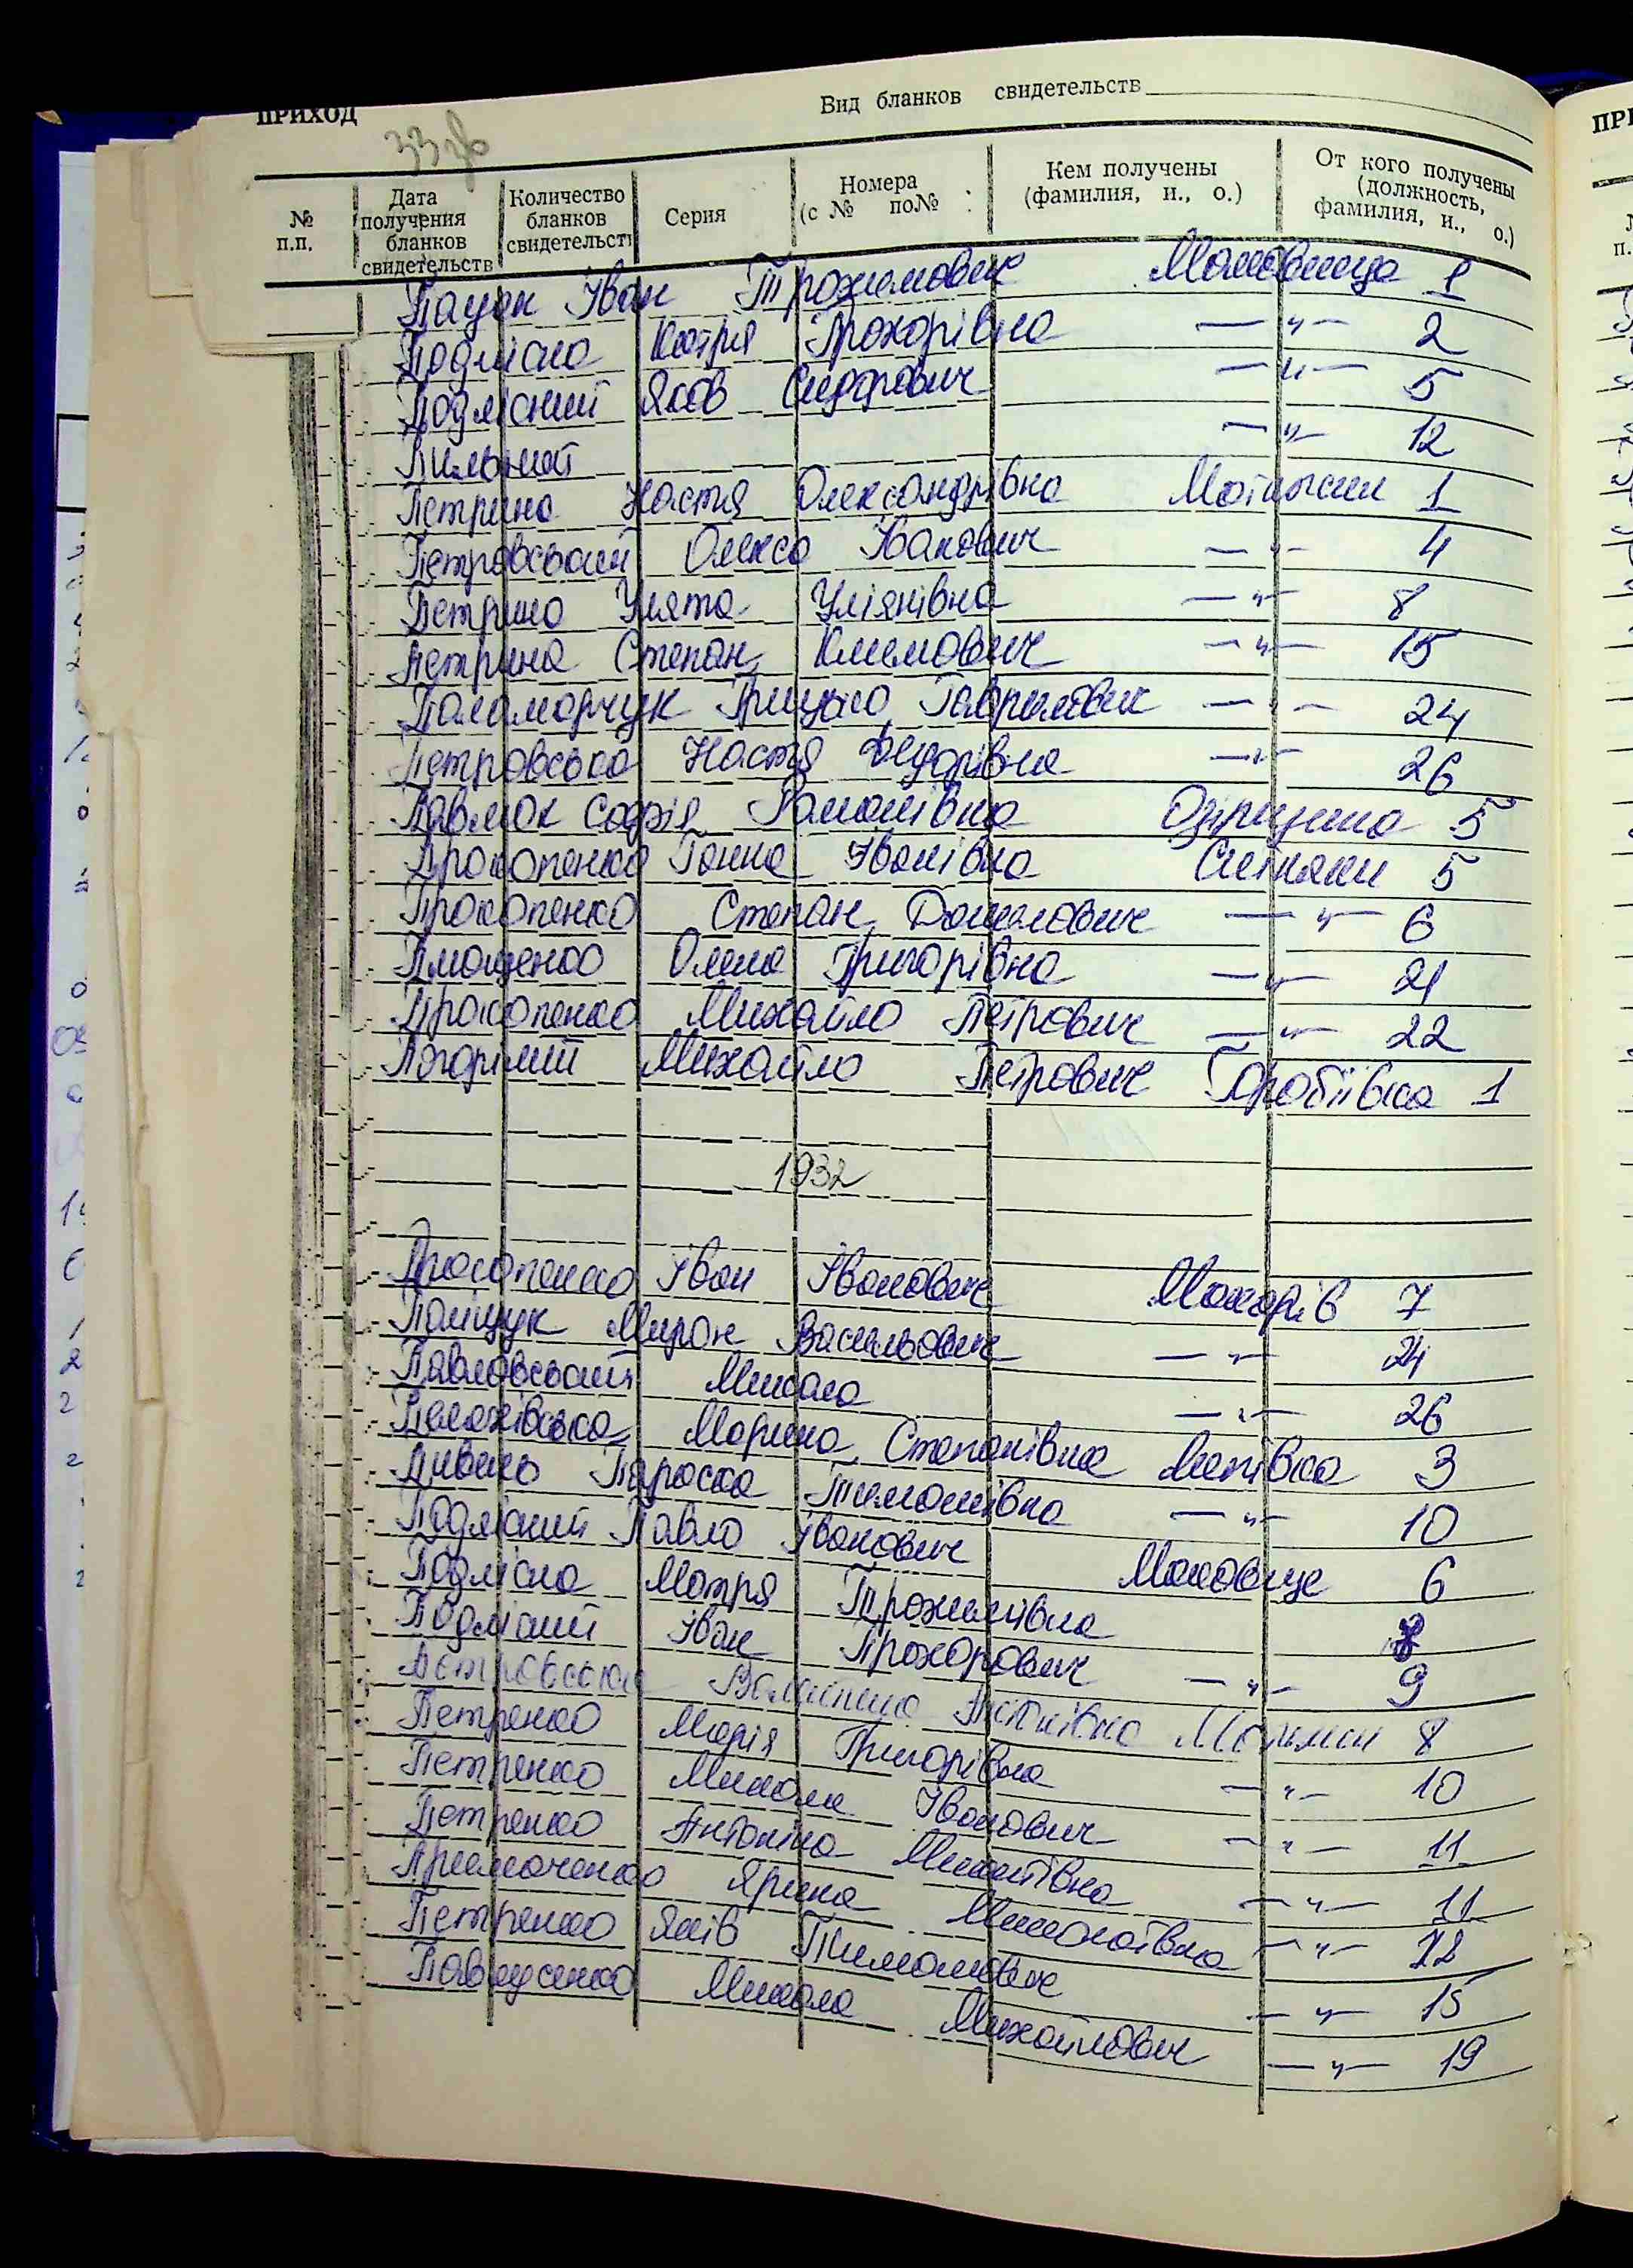 ПРИХОД
33зв
Вид бланков свидетельств
№ п.п.
Дата получения бланков свидетельств
Количество бланков свидетельств
Серия
Номера (с № по№ :
Кем получены (фамилия, и., о.)
От кого получены (должность, фамилия, и., о.)
Пацан Іван Трохимович Маковище 1
Подлісна Катря Прохорівна —"— 2
Подлісний Яков Сидорович —"— 5
Пильний —"— 12
Петрина Настя Олександрівна Мотижин 1
Петровський Олекса Іванович —"— 4
Петрина Улята Уліянівна —"— 8
Петрина Степан Климович —"— 15
Паламорчук Грицько Гаврилович —"— 24
Петровська Настя Федорівна —"— 26
Павлюк Софія Романівна Озірщина 5
Прокопенко Ганна Іванівна Ситняки 5
Прокопенко Степан Данилович —"— 6
Олена Григорівна —"— 21
Прокопенко Михайло Петрович —"— 22
Погорілий Михайло Петрович Горобіївка 1
1932
Прокопенко Іван Іванович Макарів 7
Поліщук Мирон Васильович —"— 24
Павловський Микола —"— 26
Марина Степанівна Липівка 3
Пивень Параска Тимошівна —"— 10
Подлісний Павло Іванович Маковище 6
Подлісна Мотря Трохимівна
Подлісний Іван Прохорович —"— 9
Петровська Валентина Антонівна Мотижин 8
Петренко Марія Григорівна —"— 10
Петренко Микола Іванович —"— 11
Петренко Антоніна Микитівна —"— 11
Приймаченко Ярина —"— 12
Петренко Яків Тимошович —"— 15
Павлусенко Микола Михайлович —"— 19
ПРИ